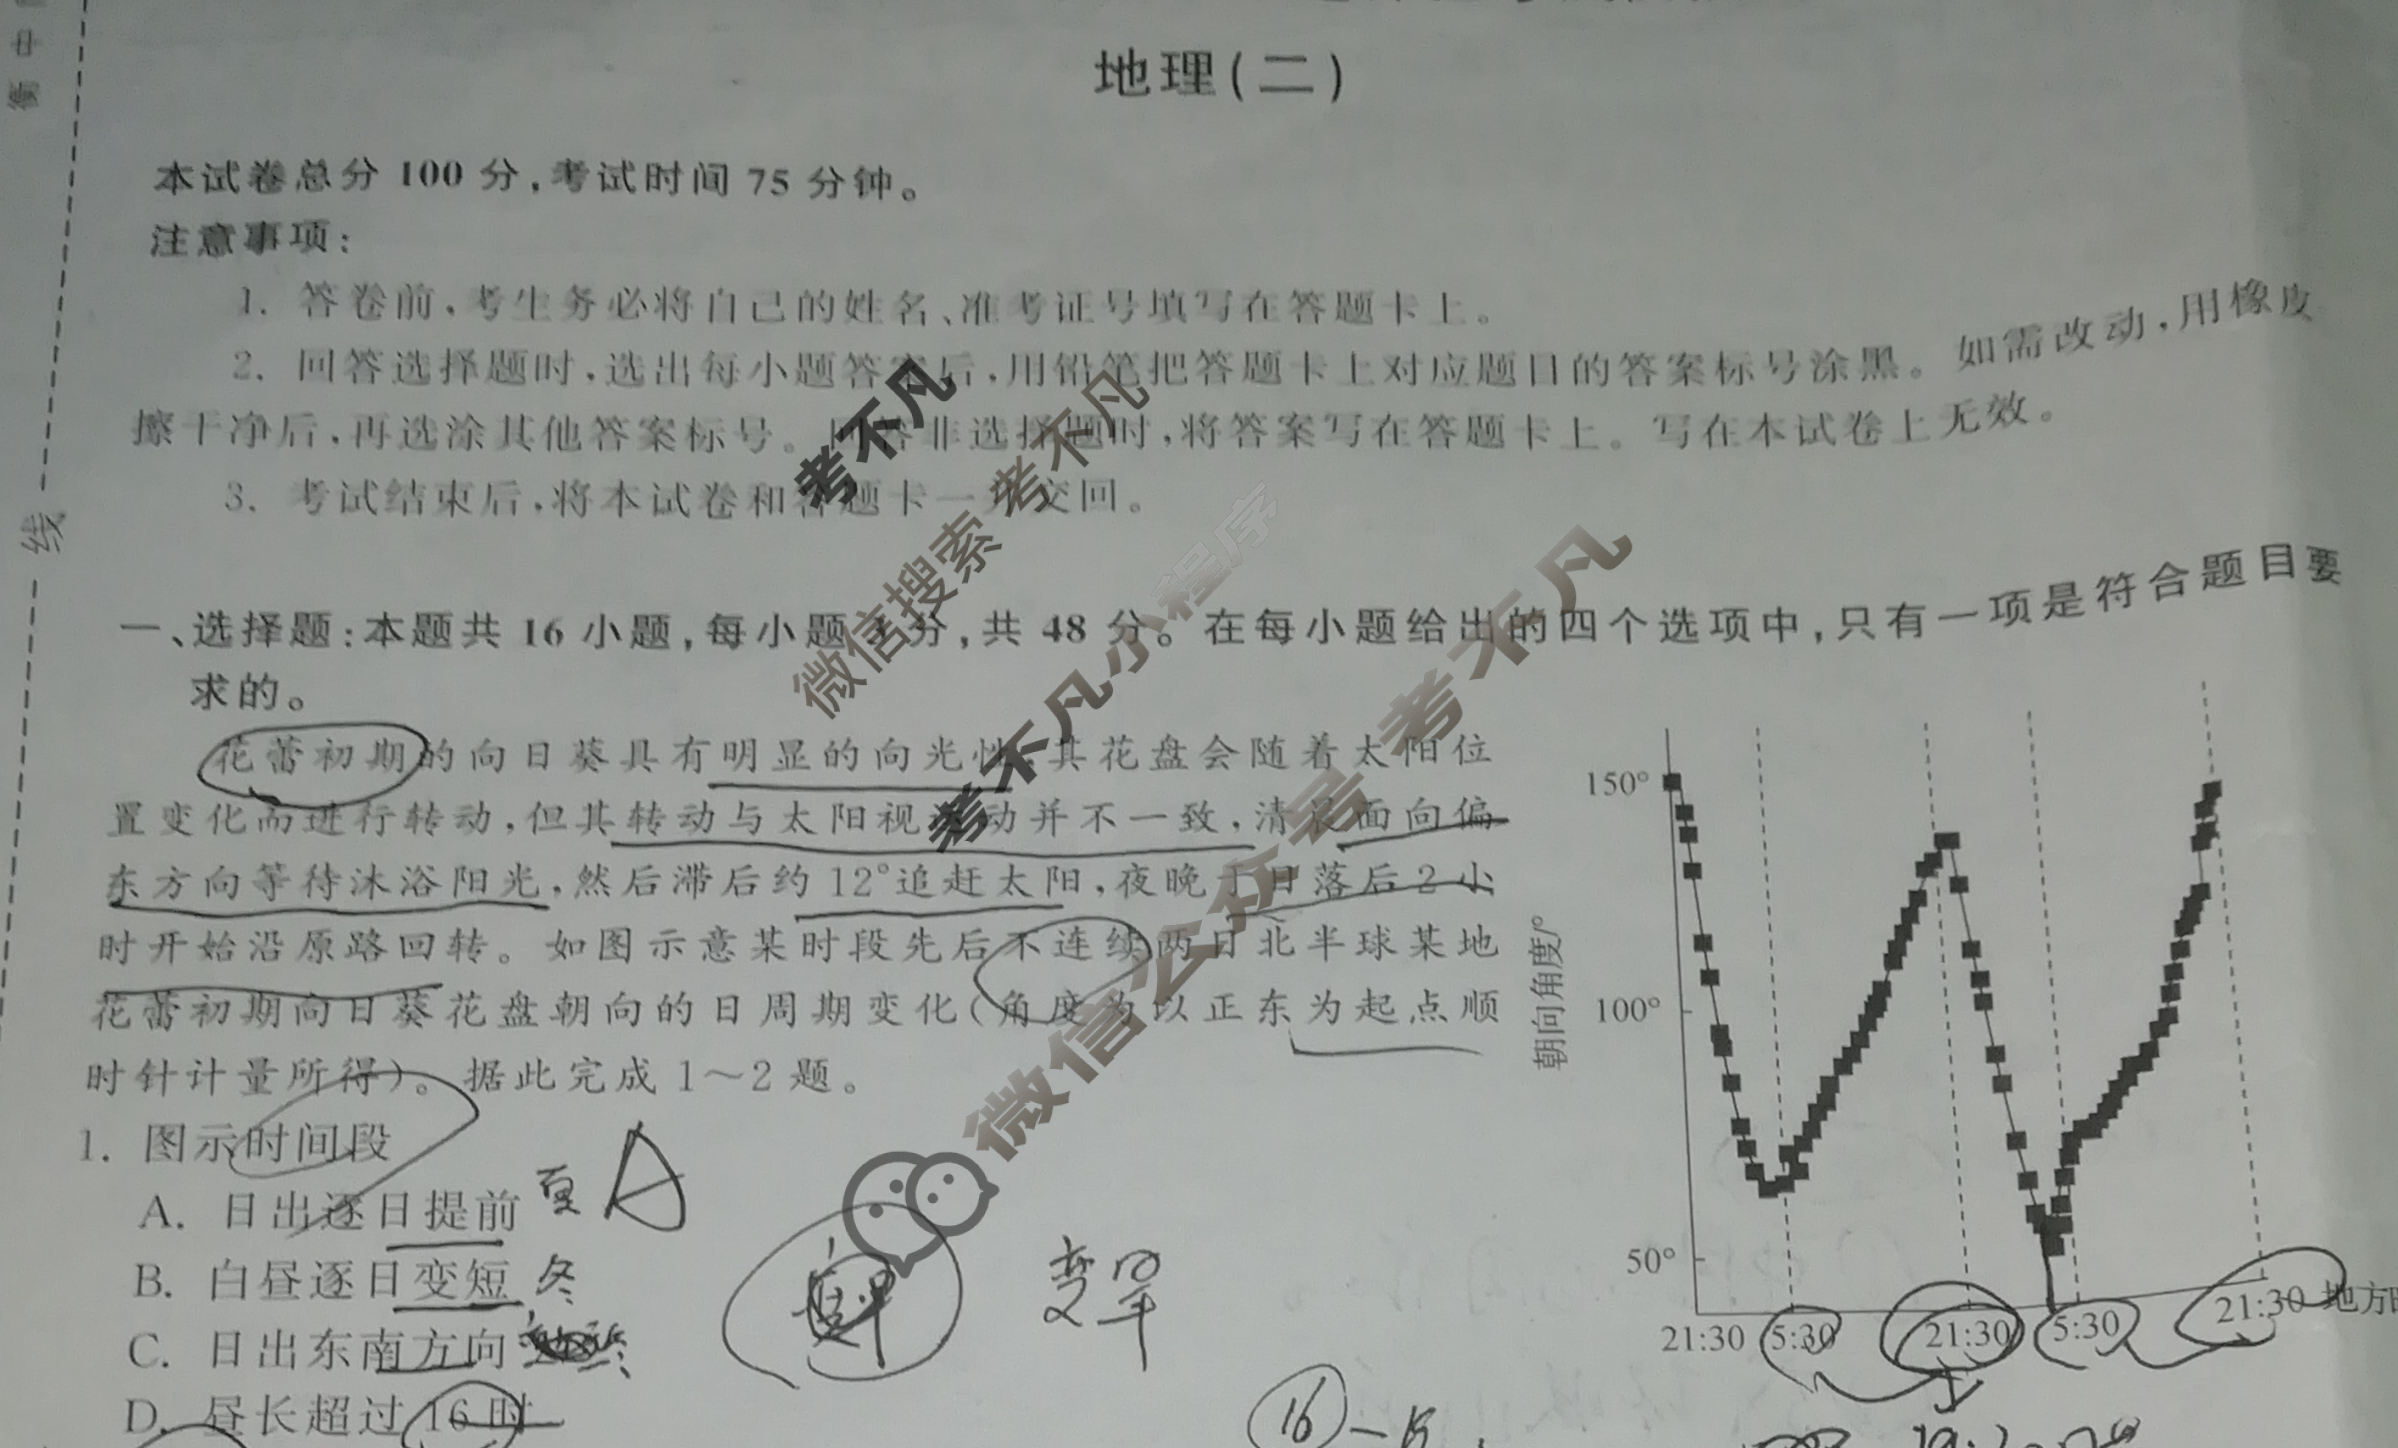 地理(二)
本试卷总分 100 分,考试时间 75 分钟。
注意事项:
1. 答卷前,考生务必将自己的姓名、准考证号填写在答题卡上。
2. 回答选择题时,选出每小题答案后,用铅笔把答题卡上对应题目的答案标号涂黑。如需改动,用橡皮
擦干净后,再选涂其他答案标号。回答非选择题时,将答案写在答题卡上。写在本试卷上无效。
3. 考试结束后,将本试卷和答题卡一并交回。
线
一、选择题:本题共 16 小题,每小题 3 分,共 48 分。在每小题给出的四个选项中,只有一项是符合题目要
求的。
花蕾初期的向日葵具有明显的向光性,其花盘会随着太阳位
置变化而进行转动,但其转动与太阳视运动并不一致,清晨面向偏
东方向等待沐浴阳光,然后滞后约 12°追赶太阳,夜晚于日落后 2 小
时开始沿原路回转。如图示意某时段先后不连续两日北半球某地
花蕾初期向日葵花盘朝向的日周期变化(角度为以正东为起点顺
时针计量所得)。据此完成 1～2 题。
1. 图示时间段
A. 日出逐日提前 夏 A
B. 白昼逐日变短 冬
C. 日出东南方向
D. 昼长超过 16 时
变早
16
朝向角度/°
150°
100°
50°
21:30 5:30 21:30 5:30 21:30 地方时
考不凡
微信搜索 考不凡
考不凡小程序
微信公众号 考不凡
衡中